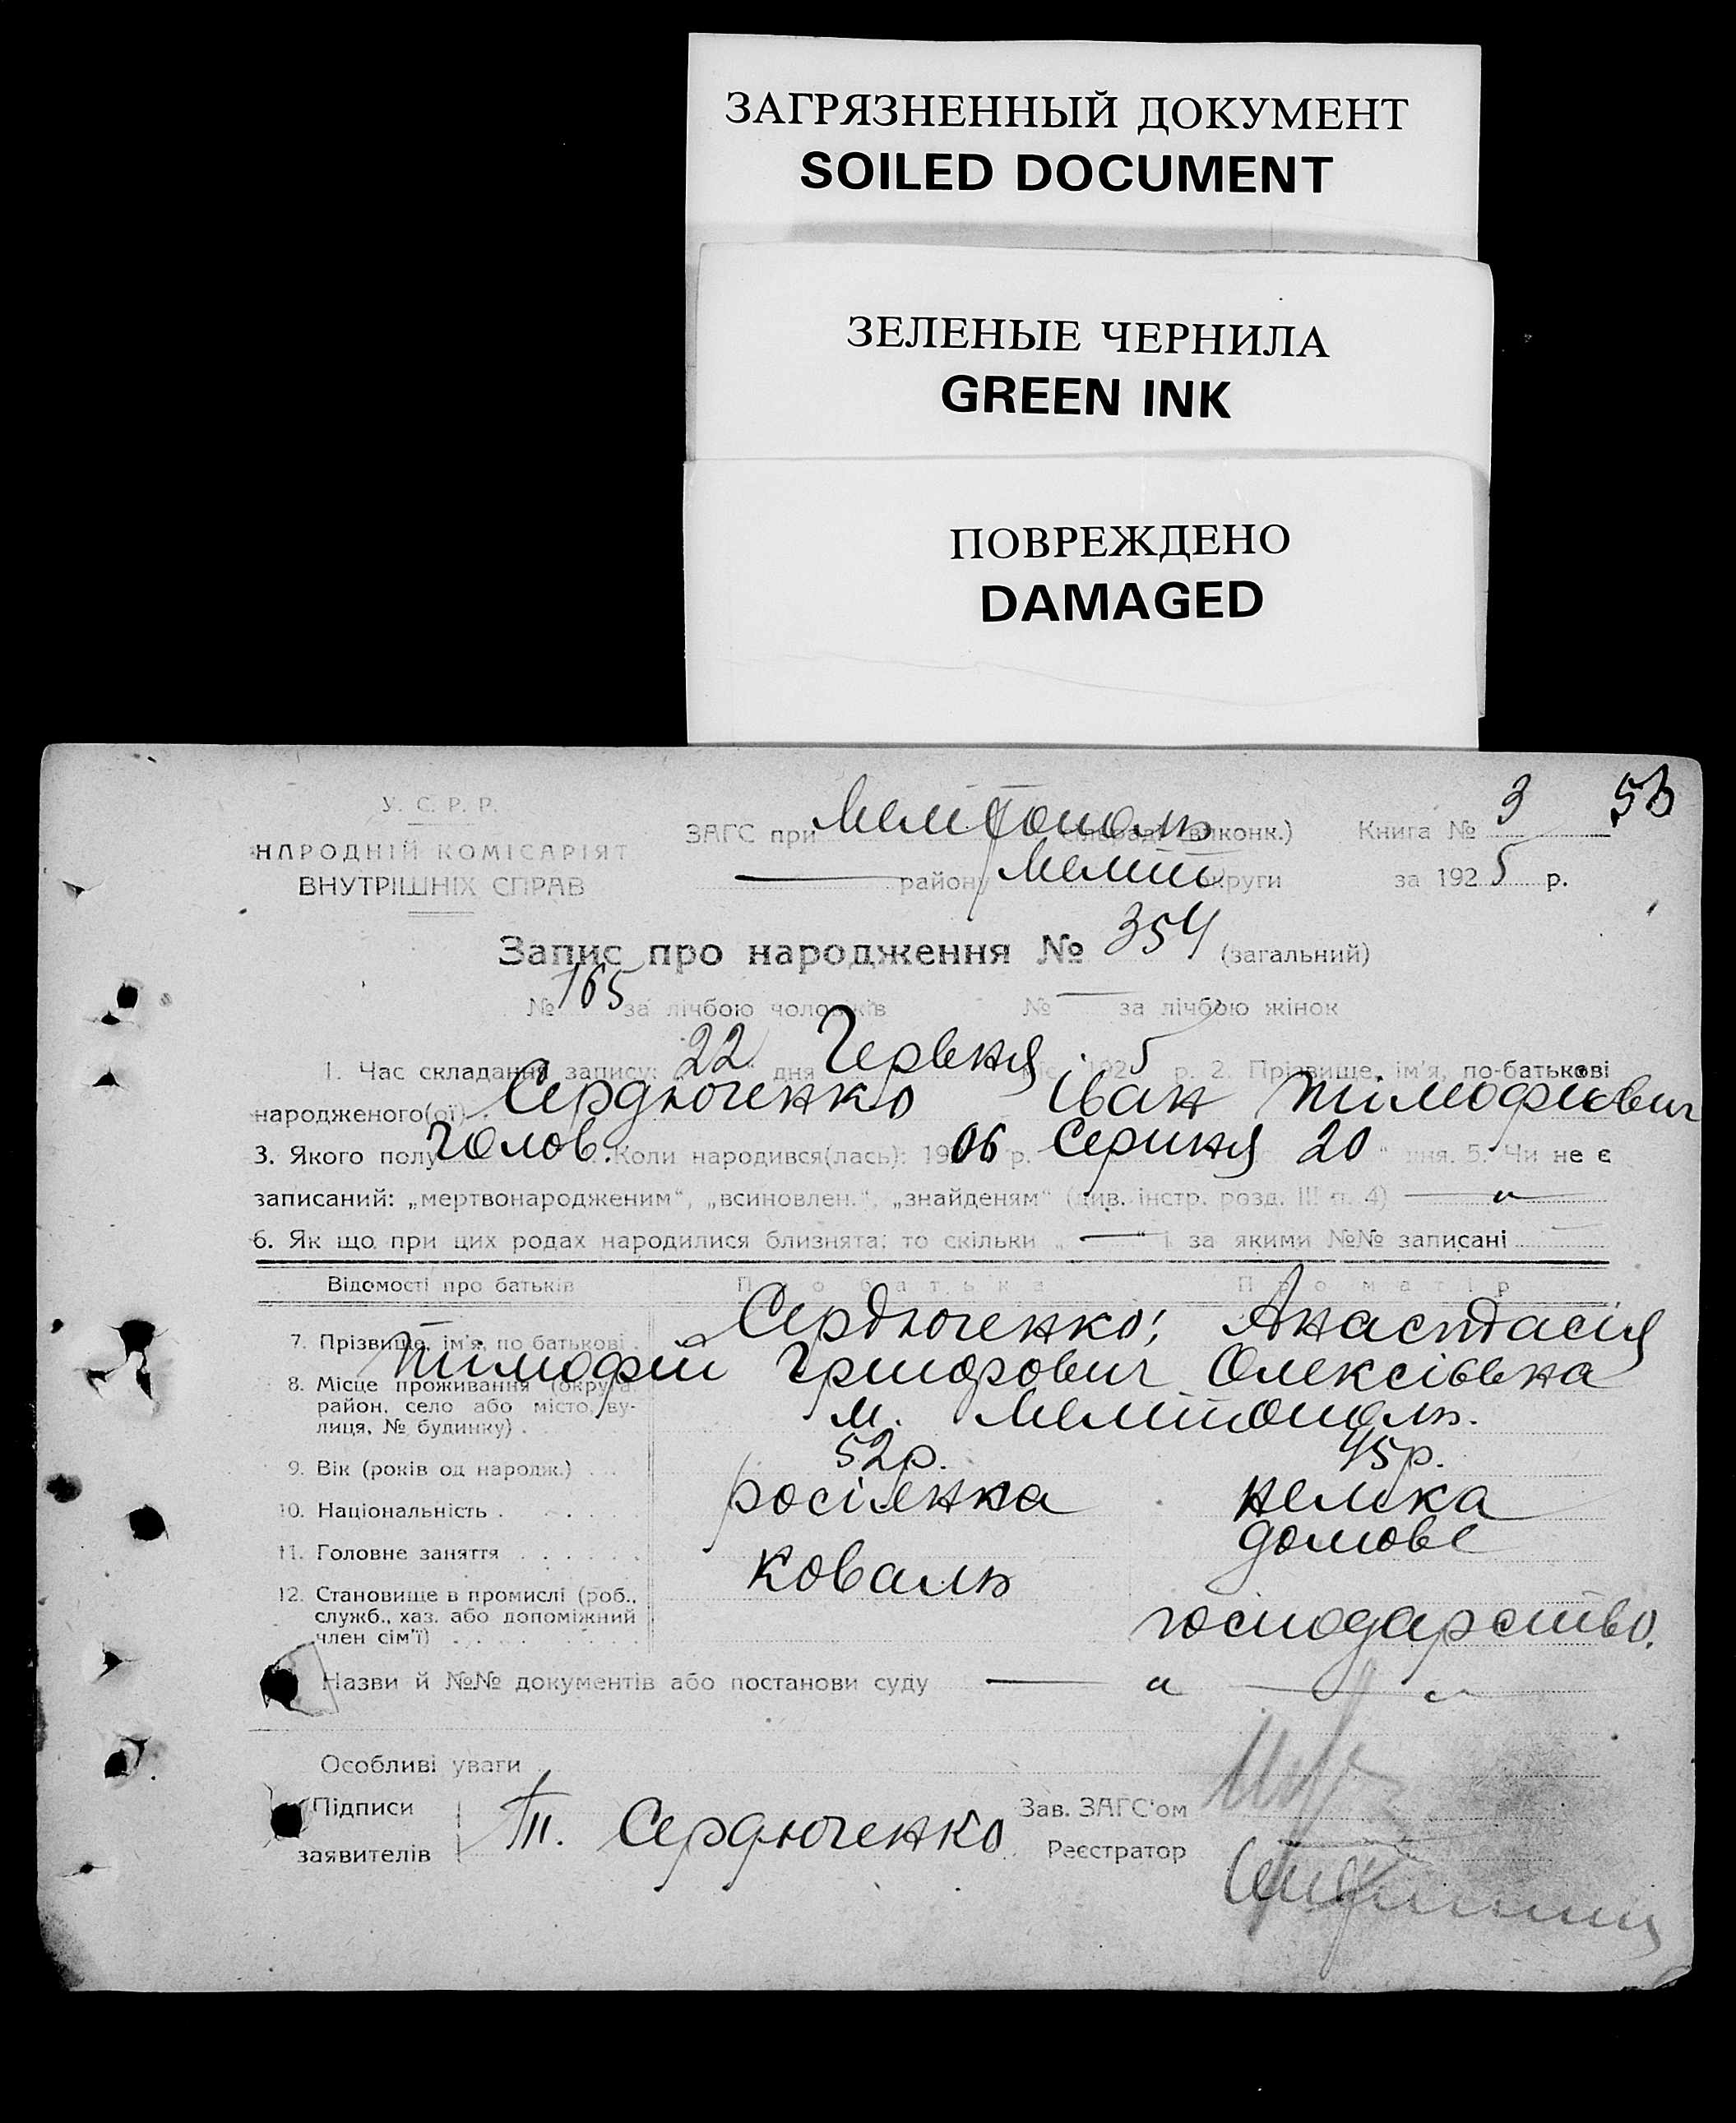 ЗАГРЯЗНЕННЫЙ ДОКУМЕНТ
SOILED DOCUMENT
ЗЕЛЕНЫЕ ЧЕРНИЛА
GREEN INK
ПОВРЕЖДЕНО
DAMAGED
У. С. Р. Р.
НАРОДНІЙ КОМІСАРІЯТ
ВНУТРІШНІХ СПРАВ
ЗАГС при Мелітополь виконк.) Книга № 3 53
— району Меліт. округи за 1925 р.
Запис про народження № 354 (загальний)
№ 165 за лічбою чоловіків № — за лічбою жінок
1. Час складання запису: 22 дня Червня 1925 р. 2. Прізвище, ім'я, по-батькові
народженого(ої) Сердюченко Іван Тімофієвич
3. Якого полу Чолов. Коли народився(лась): 1906 р. Серпня 20 " дня. 5. Чи не є
записаний: „мертвонародженим", „всиновлен.", „знайденям" (див. інстр. розд. III п. 4) — " —
6. Як що при цих родах народилися близнята; то скільки „ — " і за якими №№ записані —
Відомості про батьків Про батька Про матір
7. Прізвище, ім'я, по батькові Сердюченко; Анастасія
Тімофій Григорович Олексіівна
8. Місце проживання (округа, район, село або місто, вулиця, № будинку) м. Мелітополь.
9. Вік (років од народж.) 52р. 45р.
10. Національність росіянка немка
11. Головне заняття Коваль домове
12. Становище в промислі (роб., служб., хаз. або допоміжний член сім'ї) господарство.
Назви й №№ документів або постанови суду — " — "
Особливі уваги
Підписи заявителів Т. Сердюченко
Зав. ЗАГС'ом
Реєстратор